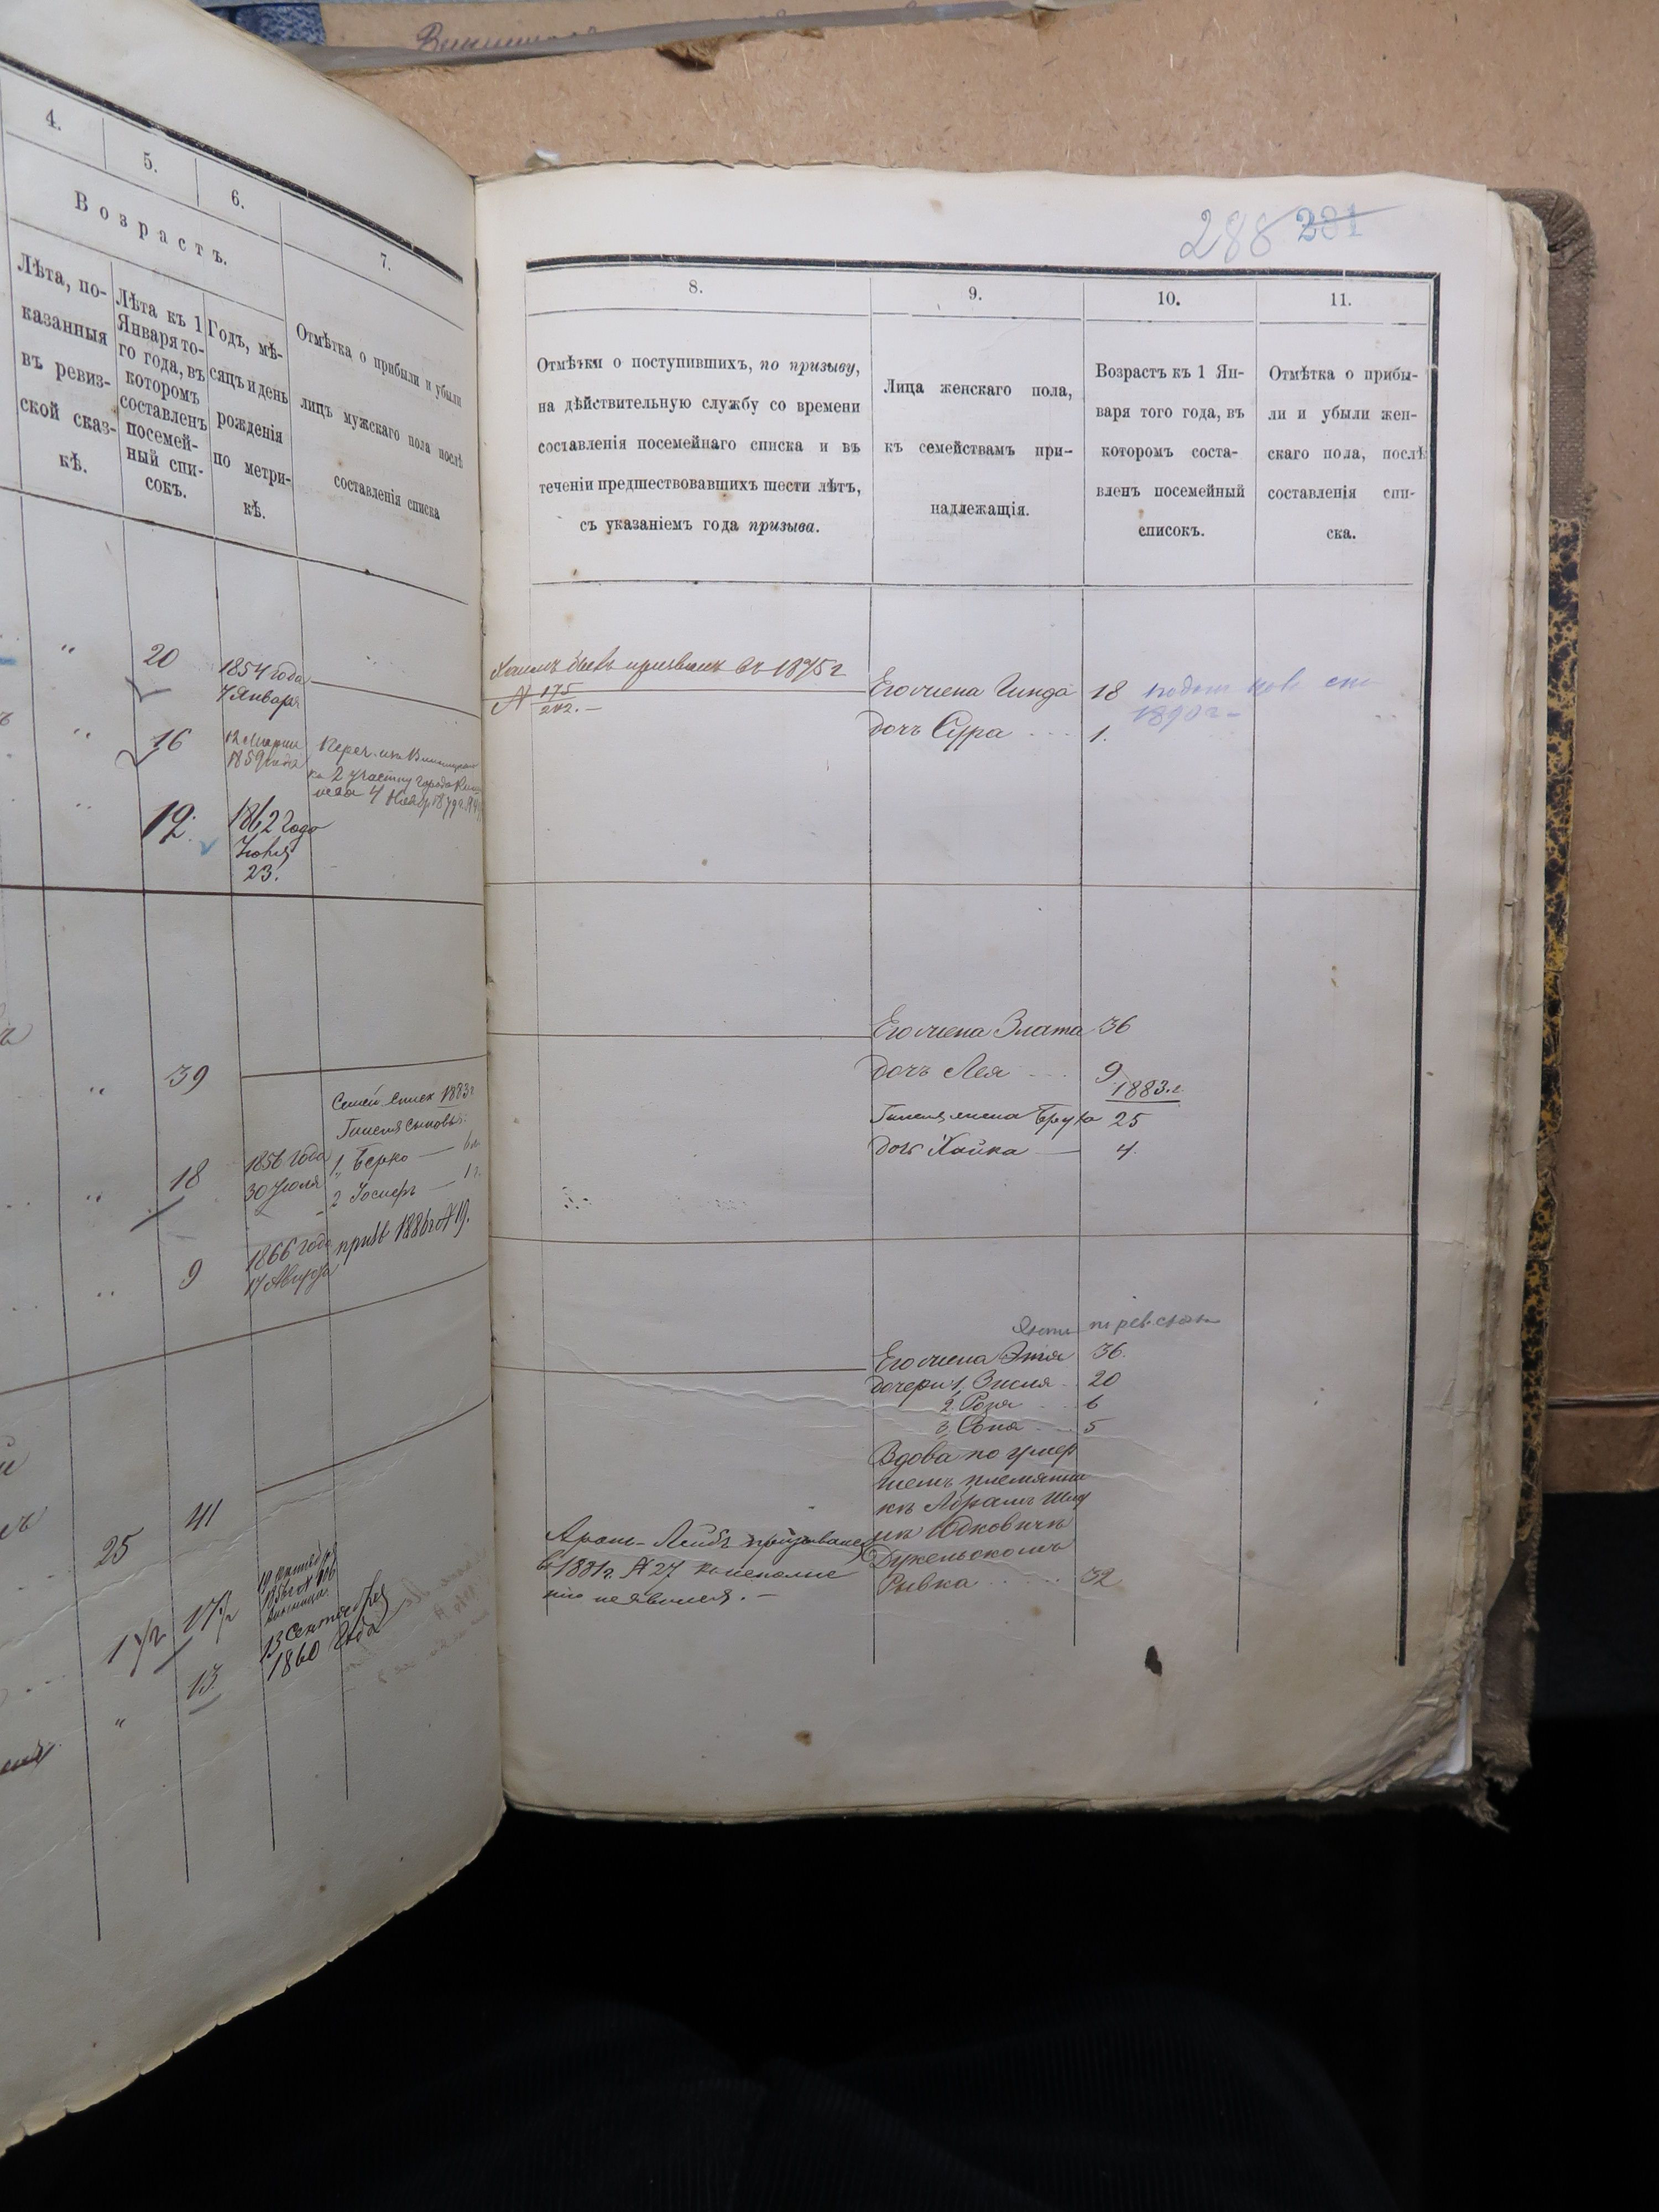 4.
5.
6.
7.
Возрастъ.
Лѣта, по-
казанныя
въ ревиз-
ской сказ-
кѣ.
Лѣта къ 1
Января то-
го года, въ
которомъ
составленъ
посемей-
ный спи-
сокъ.
Годъ, мѣ-
сяцъ и день
рожденія
по метри-
кѣ.
Отмѣтка о прибыли и убыли
лицъ мужскаго пола послѣ
составленія списка
20
1854 года
7 Января
16
12 Марта
1859 года
2 участку города
12.
1862 года
Іюня
23.
39
Семей. списк 1883 г
Сыновья:
18
1856 года
30 Іюля
1, Берко
2 Іосифъ
9
1866 года
17 Августа
приб 1886 г № 19.
41
25
1 1/2
17 1/2
13 Сентября
1860 года
13.
288 281
8.
9.
10.
11.
Отмѣтки о поступившихъ, по призыву,
на дѣйствительную службу со времени
составленія посемейнаго списка и въ
теченіи предшествовавшихъ шести лѣтъ,
съ указаніемъ года призыва.
Лица женскаго пола,
къ семействамъ при-
надлежащія.
Возрастъ къ 1 Ян-
варя того года, въ
которомъ соста-
вленъ посемейный
списокъ.
Отмѣтка о прибы-
ли и убыли жен-
скаго пола, послѣ
составленія спи-
ска.
Хаимъ былъ призванъ въ 1875 г
№ 175
202. —
Его жена Гинда 18
1890 г —
дочь Сура 1.
Его жена Злата 36
дочь Лея 9
1883. г.
жена Бруха 25
дочь Хайка — 4.
Его жена Этя 36.
дочери 1. Зисля 20
2. Розя 6
3. Соня 5
Вдова по умер
шемъ племянни
кѣ Абрамъ
Юдковичъ
Рывка 32
Аронъ-Лейбъ призывался
въ 1881 г. № 27
не явился. —